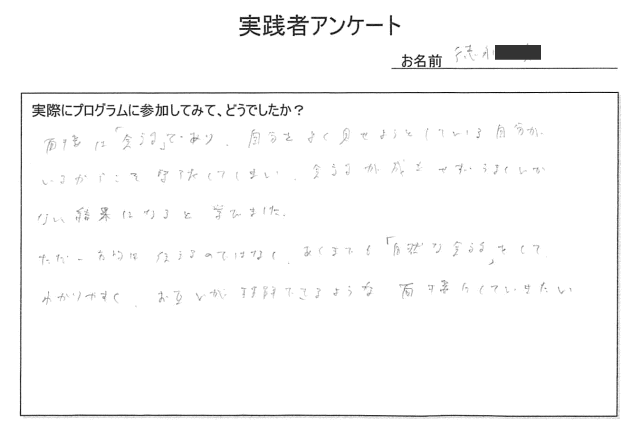 実践者アンケート
お名前 徳永
実際にプログラムに参加してみて、どうでしたか？
面接は「会話」であり、自分をよく見せようとしている自分が
いるからこそ緊張してしまい、会話が成立せずうまくいか
ない結果になると学びました。
ただ一方的に話すのではなく、あくまでも「自然な会話」をして
わかりやすく、お互いが理解できるような面接にしていきたい